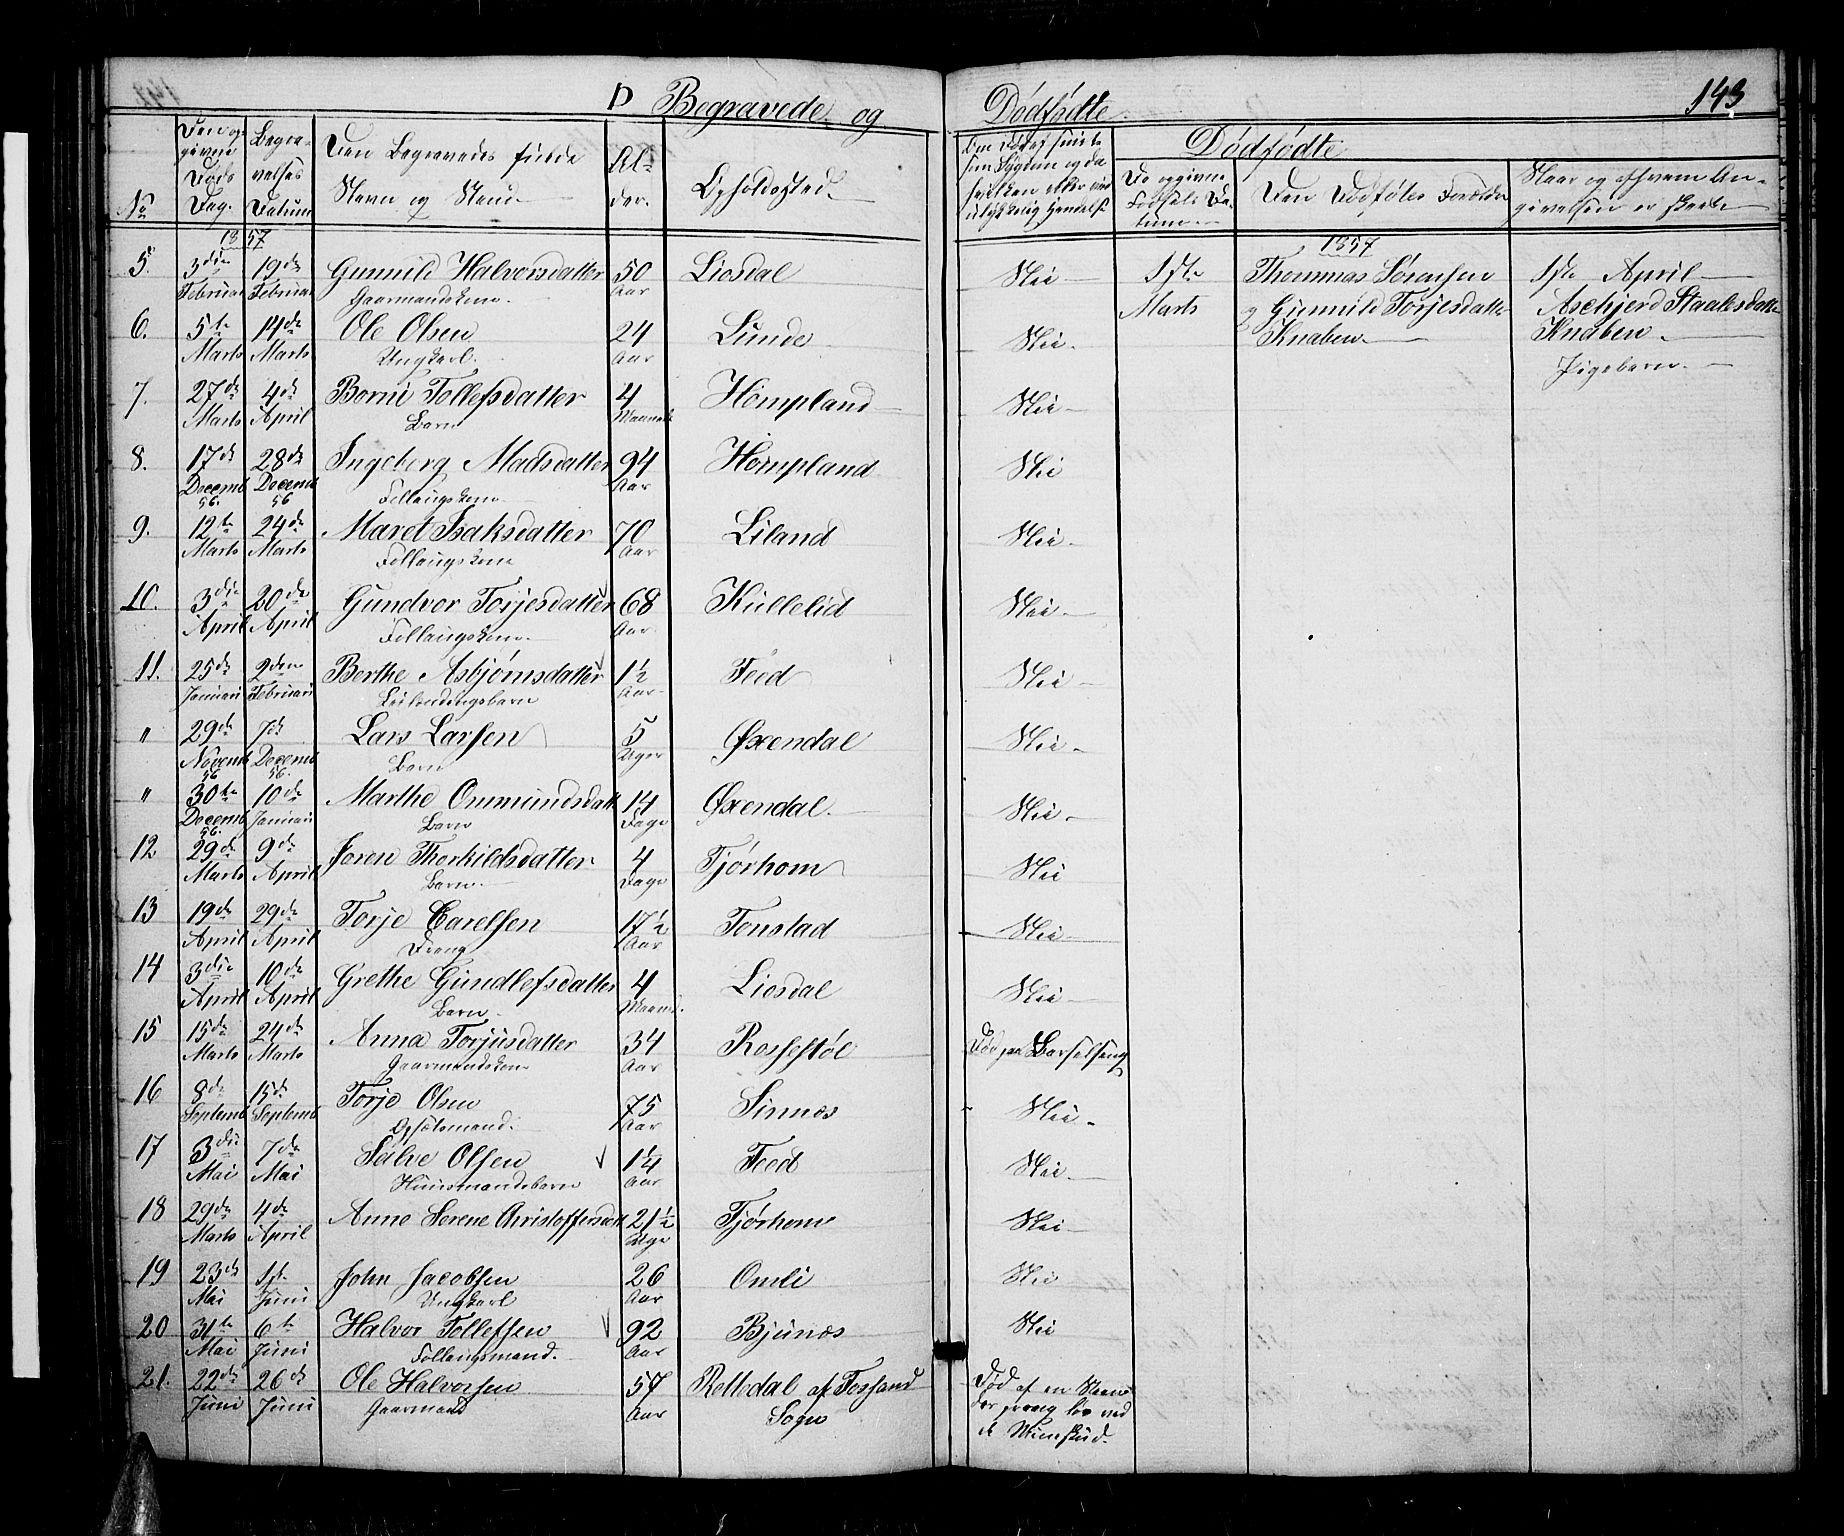 D Begravede og Dødfødte. 143
No
Den op-
givne
Døds
Dag.
Begra-
velses
Datum
Den Begravedes fulde
Navn og Stand.
Al-
der.
Opholdssted.
Dødfødte
Den Dødfødtes Forældre
Naar og af hvem An-
givelsen er skeet
1857
5. 3die Februar 19de Februar Gunnild Halvorsdatter 50 Aar Liosdal Nei
Gaarmandskone.
6. 5te Marts 14de Marts Ole Olsen 24 Aar Lunde Nei.
Ungkarl.
7. 27de Marts 4de April Borni Tollefsdatter 4 Maaneder Hompland Nei
Barn
8. 17de Decemb 56. 28de Decemb 56 Ingeborg Madsdatter 94 Aar Hompland Nei
Follaugskone
9. 12te Marts 24de Marts Maret Isaksdatter 70 Aar Liland Nei.
Follaugskone
10. 3die April 20de April Gundvor Torjesdatter 68 Aar. Kullelid Nei
Follaugskone
11. 25de Januari 2den Februari Berthe Asbjørnsdatter 1½ Aar Feed Nei
Leilendingsbarn
" 29de Novemb 56 7de Decemb 56. Lars Larsen 5 Uger Øxendal Nei
Barn
" 30te Decemb 56. 10de Januari Marthe Onmundsdatt 14 Dage Øxendal. Nei
Barn
12 29de Marts 9de April Joren Thorkildsdatter 4 Dage Tjørhom Nei
Barn.
13 19de April 29de April Torje Carelsen 17½ Aar Tonstad Nei
Dreng
14 3die April 10de April Grethe Gundlefsdatter 4 Maaned. Liosdal Nei
Barn
15 15de Marts 24de Marts Anna Torjusdatter 34 Aar Rossestøl Død paa Barselseng
Gaarmandskone
16 8de Septemb 15de Septemb Torje Olsen 75 Aar Sinnes Nei.
Opsætsmand.
17 3die Mai 7de Mai Salve Olsen 1¼ Aar Feed Nei.
Huusmandsbarn
18 29de Marts 4de April Anne Serene Christoffersdatt 21½ Uge Tjørhom Nei
19 23de Mai 1ste Juni John Jacobsen 26 Aar Omli Nei
Ungkarl
20 31te Mai 6te Juni Halvor Tollefsen 92 Aar Bjunes Nei
Follaugsmand.
21. 22de Juni 26de Juni Ole Halvorsen 57 Aar Rettedal af Fossand
Gaarmand Sogn
Død af en
ved
1857
1ste Thommas Sørensen 1ste April
Marts og Gunnild Torjesdatter Aschjerd Staalesdatter
Knaben. Knaben.
Pigebarn.